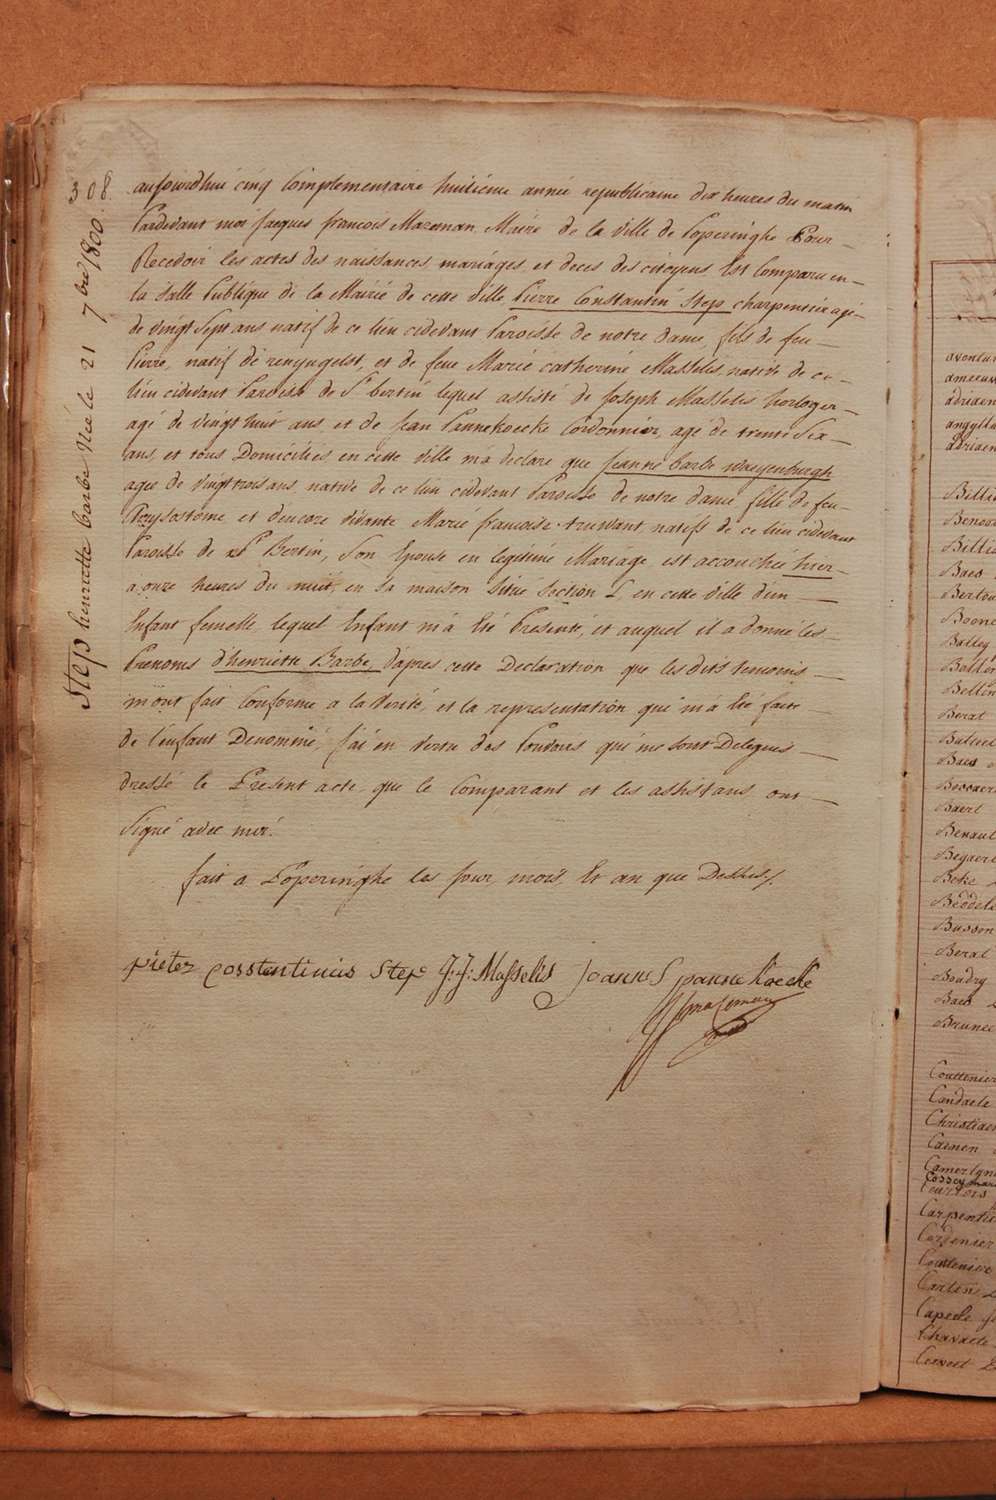 308.
Step henriette barbe Née le 21 7bre 1800.
aujourdhui cinq Complementaire huitieme année republicaine dix heures du matin
Pardevant moi Jacques francois Mazeman Maire de la ville de Poperinghe Pour
Recevoir les actes des naissances, mariages, et deces des citoyens, Est Comparu en
la Salle Publique de la Mairie de cette ville Pierre Constantin Step charpentier agé
de vingt Sept ans natif de ce lieu cidevant Paroisse de notre dame, fils de feu
Pierre, natif de renyngelst, et de feue Marie catherine Masselis native de ce
lieu cidevant Paroisse de St bertin lequel assisté de Joseph Masselis horloger
agé de vingt huit ans, et de Jean Pannekoecke Cordonnier, agé de trente Six
ans, et tous Domiciliés en cette ville m'a declaré que Jeanne barbe waeyenburgh
agée de vingt trois ans, native de ce lieu cidevant Paroisse de notre dame fille de feu
Crysostome et d'encore vivante Marie francoise truwant natifs de ce lieu cidevant
Paroisse de St Bertin, Son Epouse en legitime Mariage est accouchée hier
a onze heures du nuit, en Sa maison Située Section L, en cette ville d'un
Enfant femelle, lequel Enfant m'a été Presenté, et auquel il a donné les
Prenoms d'henriette Barbe, d'après cette Declaration que les dits temoins
m'ont fait Conforme a la Verité, et la representation qui m'a été faite
de l'enfant Denommé, J'ai en vertu des Pouvoirs qui me sont Delegués
dressé le Present acte que le Comparant et les assistans ont
Signé avec moi.
fait a Poperinghe les Jour, mois, Et an que Dessus.
pieter Constentinus Step J: J: Masselis Joannes panne koecke
aventur
ameeuw
adriaen
angylla
adriaen
Billia
Benova
Billia
Baes
Bertou
Boone
Balley
Baller
Bellin
Berat
Buteel
Baes
Boccaert
Baert
Benault
Begaere
Beke
Beddele
Busson
Berat
Boudry
Baes
Brunee
Couttenier
Candaele
Christiaen
Carmen
Camerlyn
Cossey mar
Courtois
Carpentie
Cordenier
Couttenier
Carlin
Capeele
Chavaete
Cervoet